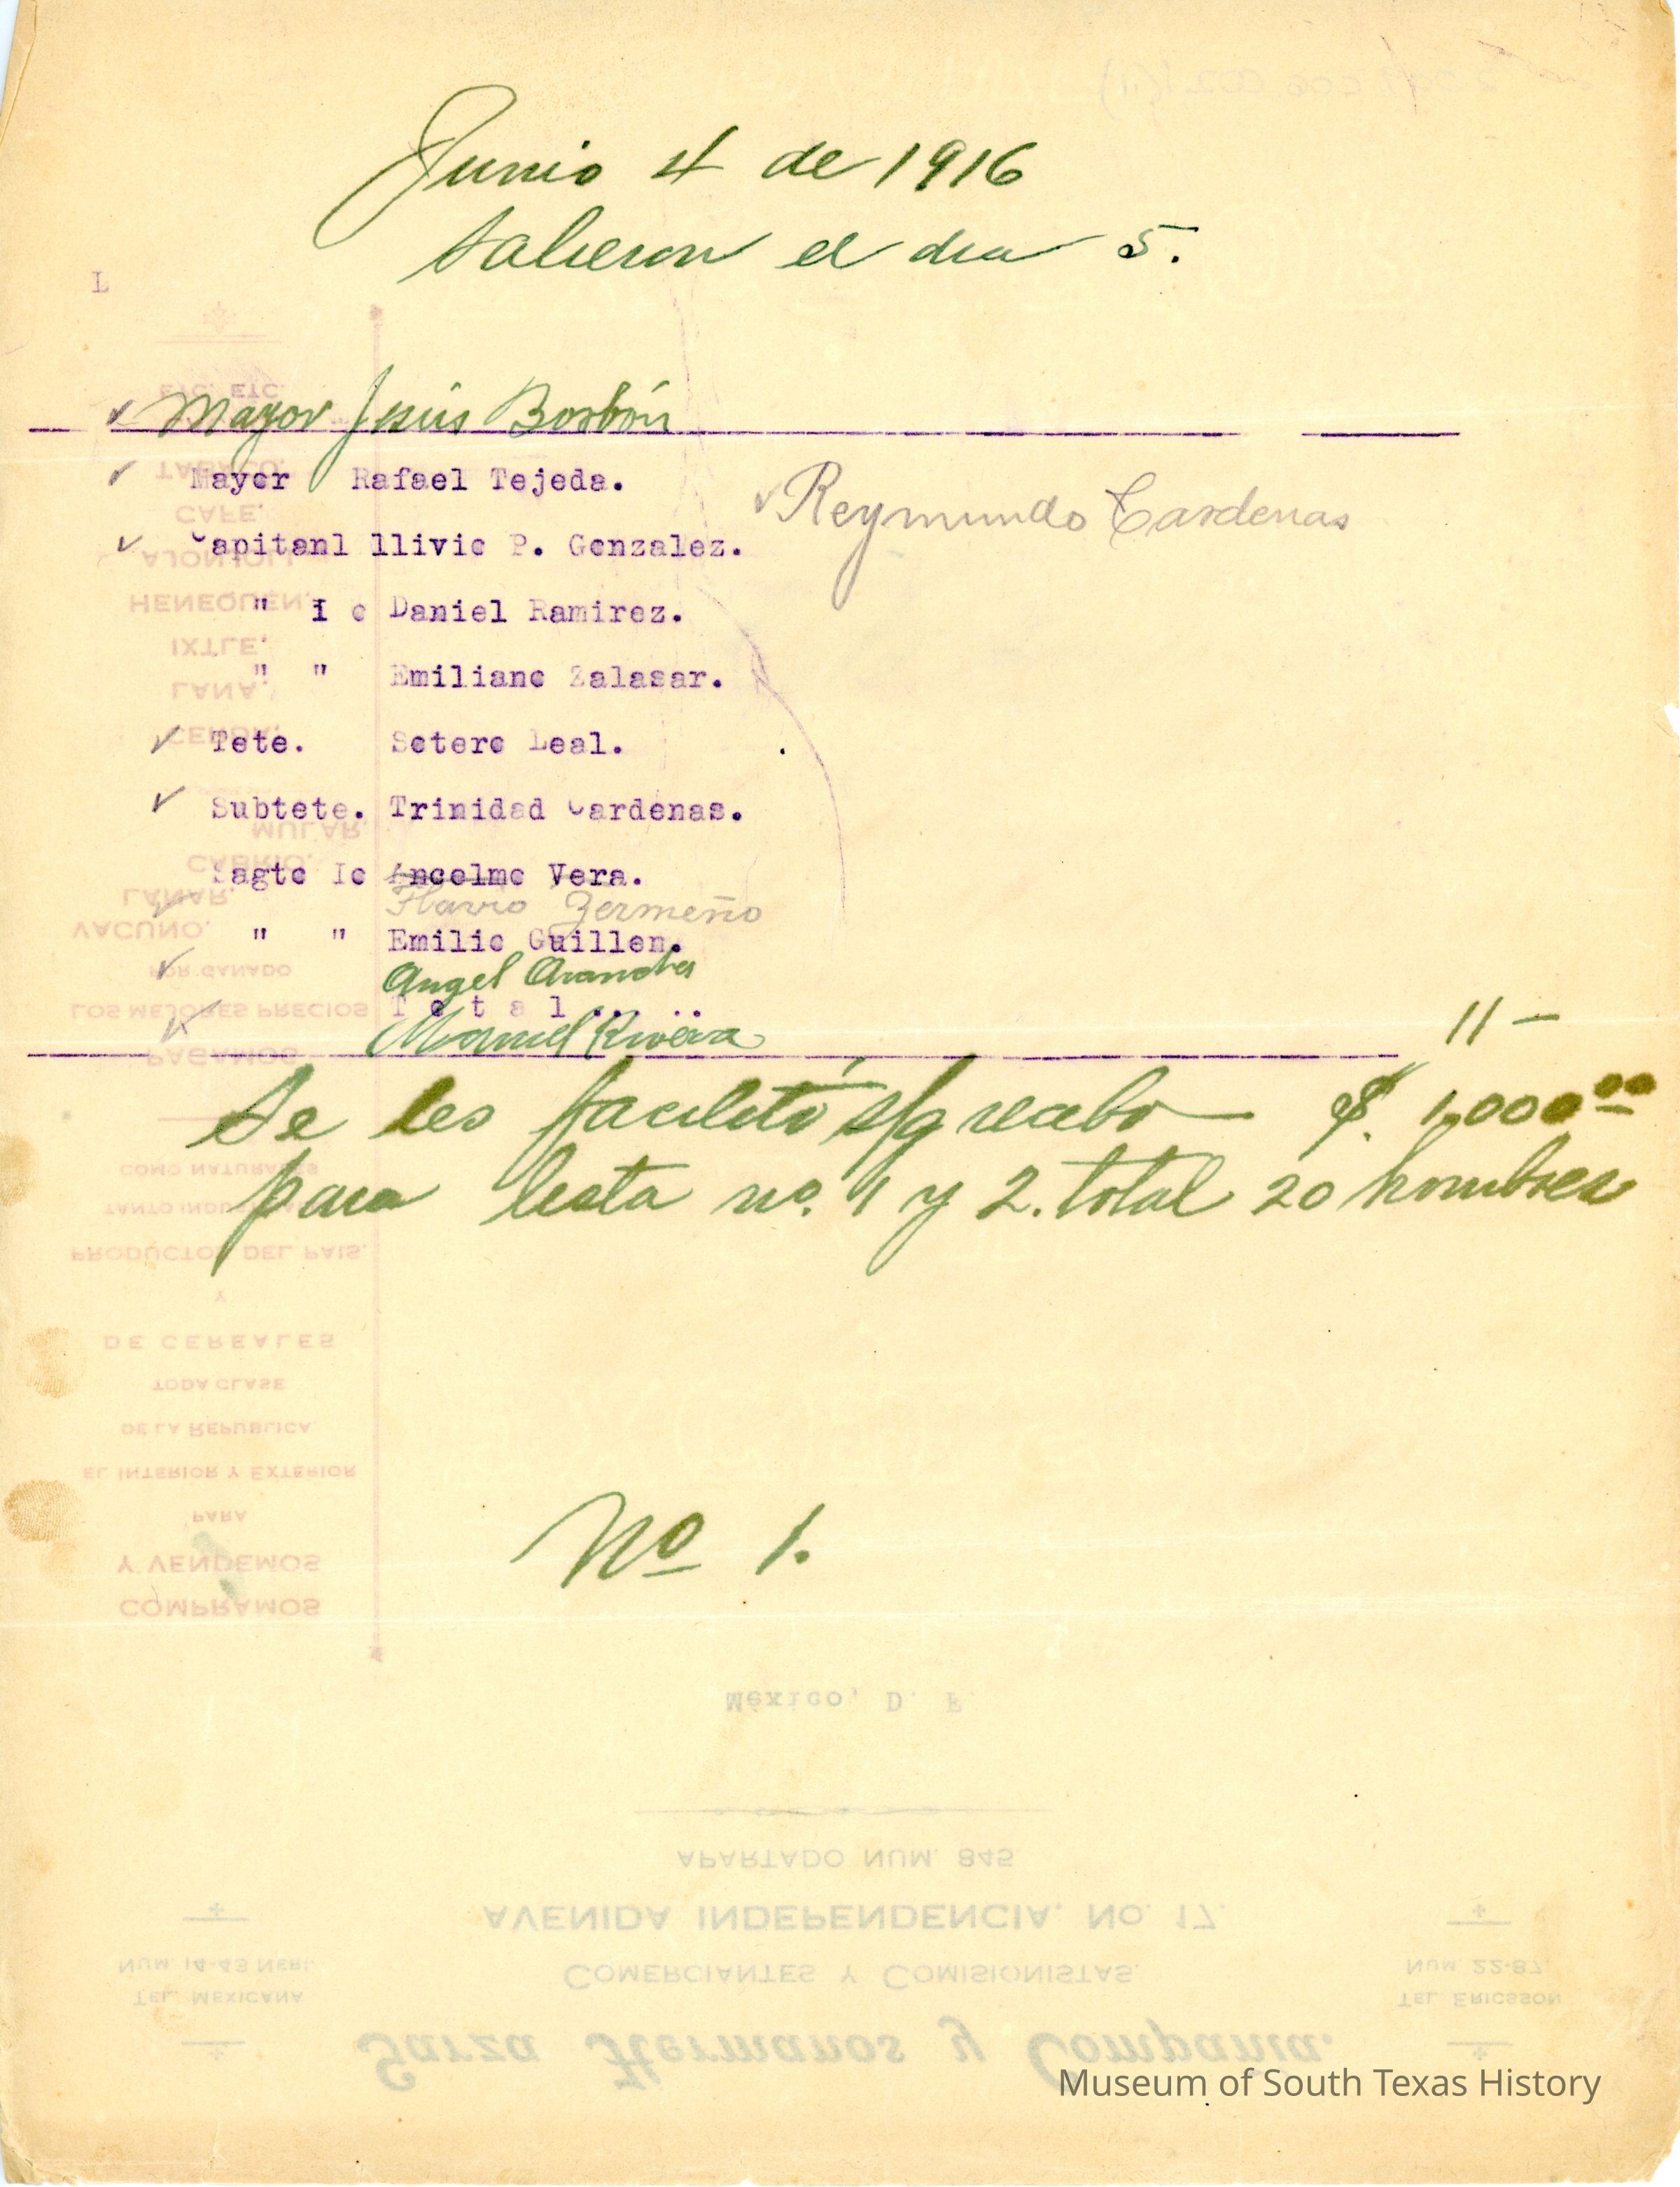 Junio 4 de 1916
Salieron el dia 5.
L
Mayor Jesús Borbón
Mayor Rafael Tejeda.
Reymundo Cardenas
Capitan1 llivio P. Gonzalez.
" I o Daniel Ramirez.
" " Emiliano Zalasar.
Tete. Sotero Leal.
Subtete. Trinidad Cardenas.
Sagto Io Ancelmo Vera.
Flavio Zermeño
" " Emilio Guillen.
Angel
T o t a l . . . .
11 -
Manuel Rivera
Se les facilitó s/g recibo $. 1,000.00
para lista no. 1 y 2. total 20 hombres
No 1.
ETC. ETC.
TABACO,
CAFE,
AJONJOLI,
HENEQUEN,
IXTLE,
LANA,
CERDA,
MULAR,
CABRIO,
LANAR,
VACUNO,
POR GANADO
LOS MEJORES PRECIOS
PAGAMOS
COMO NATURALES
TANTO
PRODUCTOS DEL PAIS,
Y
DE CEREALES
TODA CLASE
DE LA REPUBLICA,
EL INTERIOR Y EXTERIOR
PARA
Y VENDEMOS
COMPRAMOS
México, D. F.
APARTADO NUM. 845
AVENIDA INDEPENDENCIA, NO. 17.
NUM. 14-43 NERI.
COMERCIANTES Y COMISIONISTAS.
NUM. 22-87.
TEL. MEXICANA
TEL. ERICSSON
Garza Hermanos y Compañia.
Museum of South Texas History